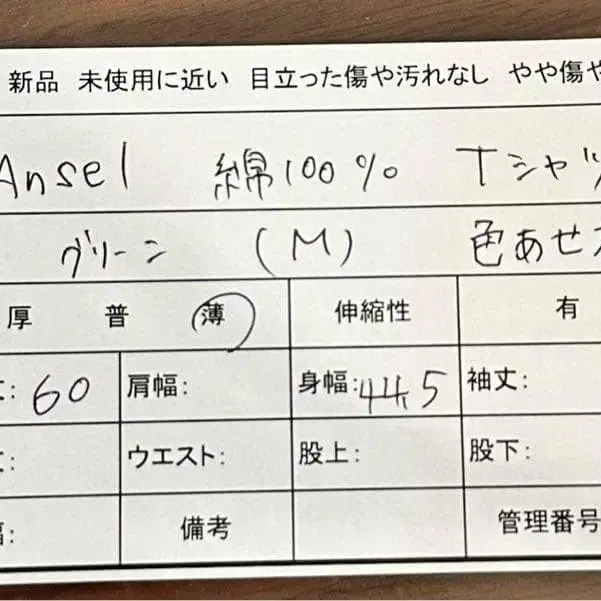 新品 未使用に近い 目立った傷や汚れなし やや傷や
Ansel 綿100% Tシャツ
グリーン (M) 色あせ
厚 普 薄 伸縮性 有
: 60 肩幅: 身幅: 44.5 袖丈:
: ウエスト: 股上: 股下:
: 備考 管理番号